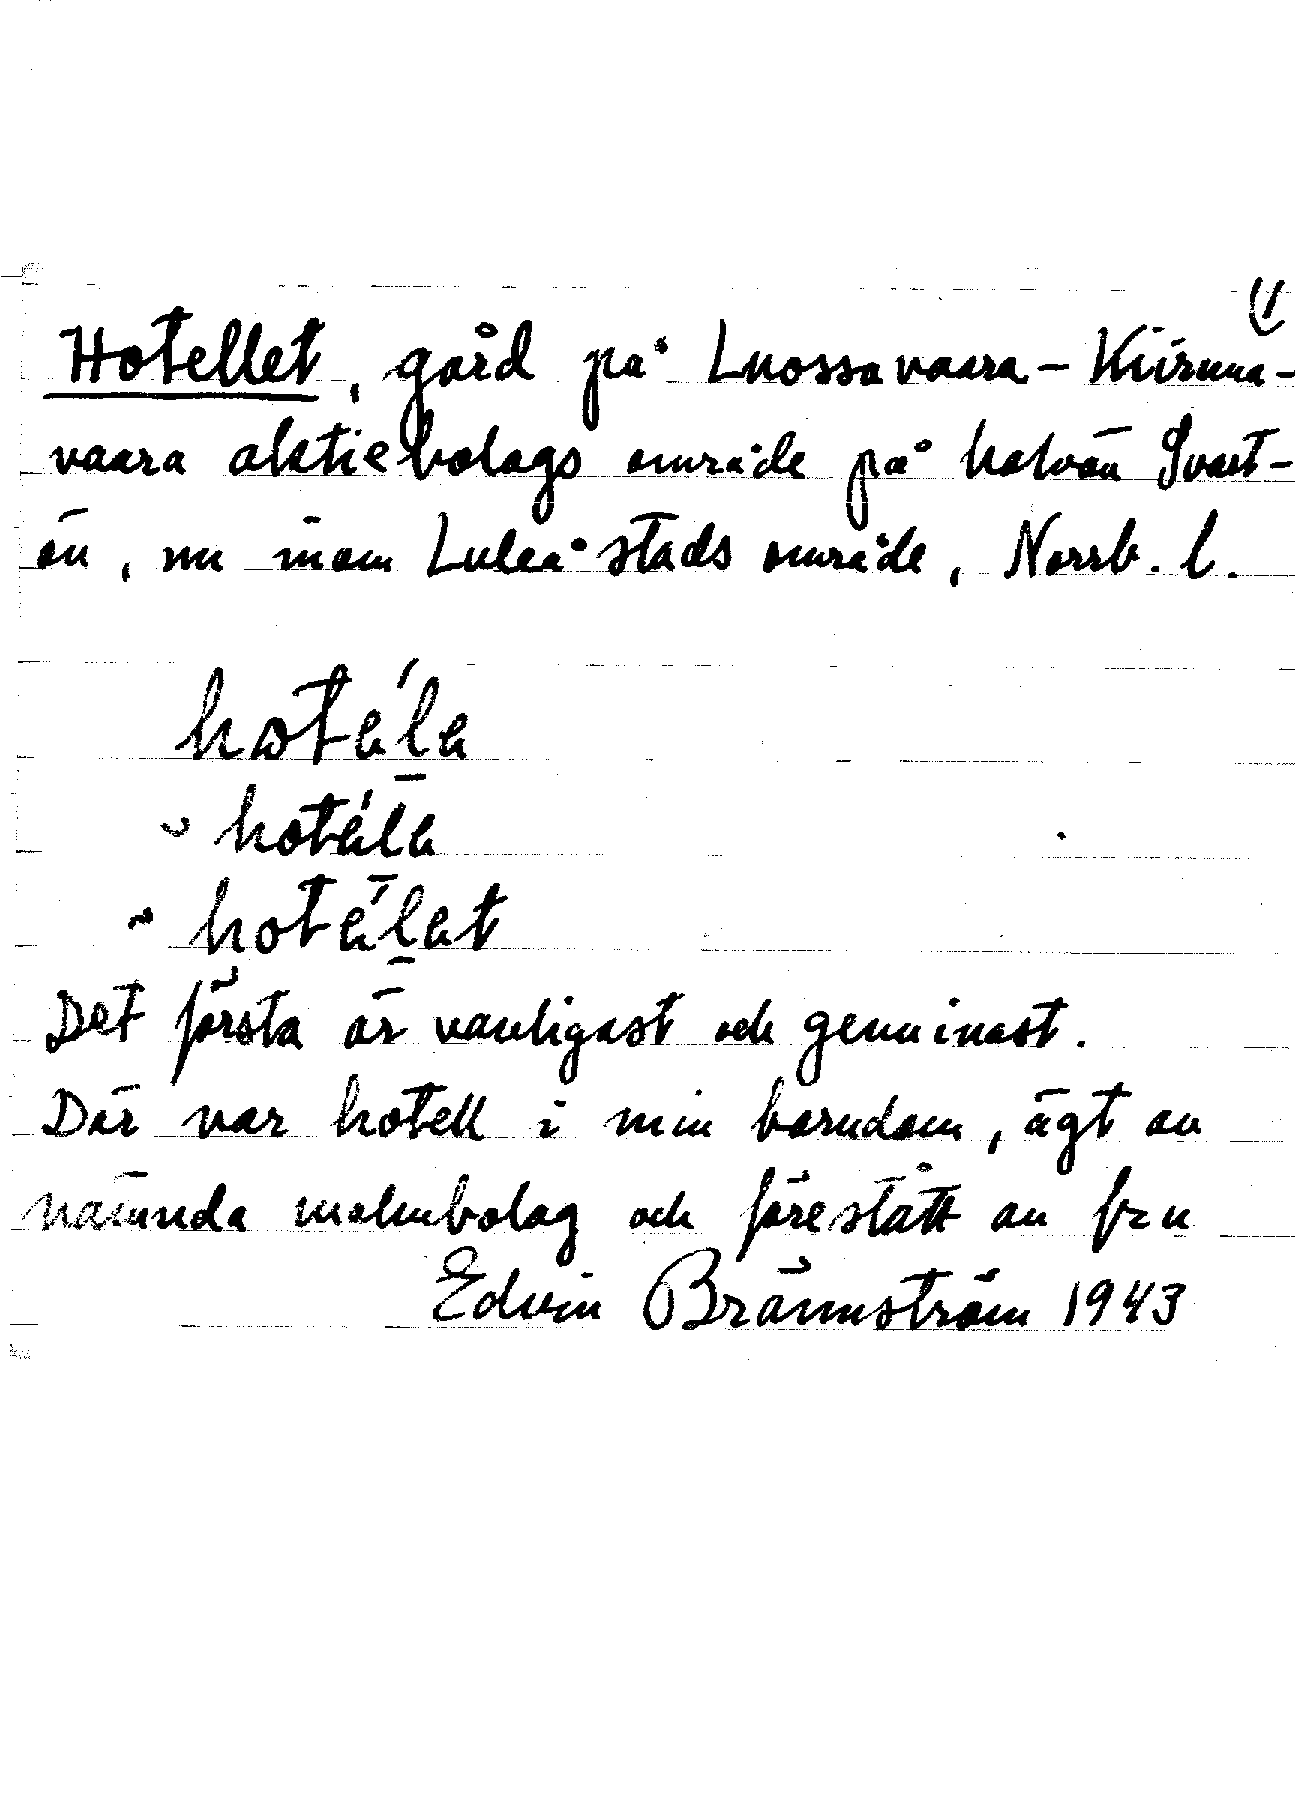 (1
Hotellet, gård på Luossavaara-Kiiruna-
vaara aktiebolags område på halvön Svart-
ön, nu inom Luleå stads område, Norrb. l.
hotä́la
hotä́la
hotä́lat
Det första är vanligast och genuinast.
Där var hotell i min barndom, ägt av
nämnda malmbolag och förestått av fru
Edvin Brännström 1943